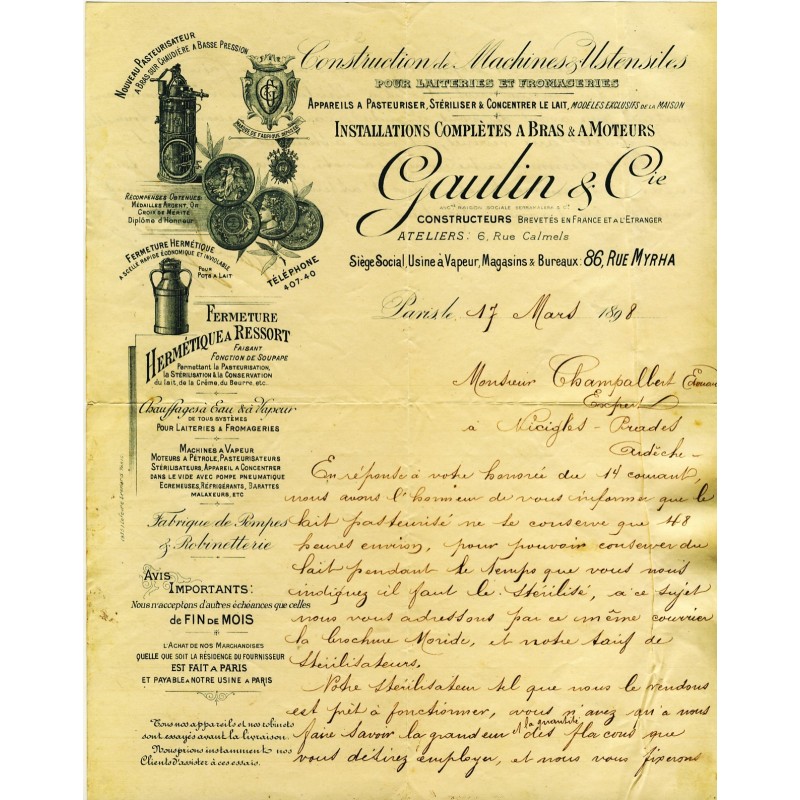 NOUVEAU PASTEURISATEUR
A BRAS SUR CHAUDIÈRE A BASSE PRESSION
Construction de Machines & Ustensiles
POUR LAITERIES ET FROMAGERIES
APPAREILS A PASTEURISER, STÉRILISER & CONCENTRER LE LAIT, MODÈLES EXCLUSIFS DE LA MAISON
INSTALLATIONS COMPLÈTES A BRAS & A MOTEURS
Gaulin & Cie
ANCne RAISON SOCIALE
CONSTRUCTEURS BREVETÉS EN FRANCE ET A L'ETRANGER
ATELIERS: 6, Rue Calmels
Siège Social, Usine à Vapeur, Magasins & Bureaux: 86, RUE MYRHA
RÉCOMPENSES OBTENUES
MÉDAILLES ARGENT, OR
CROIX DE MÉRITE
Diplôme d'Honneur
FERMETURE HERMÉTIQUE
A SCELLÉ RAPIDE ÉCONOMIQUE ET INVIOLABLE
POUR
POTS A LAIT
TÉLÉPHONE
407-40
FERMETURE
HERMÉTIQUE A RESSORT
FAISANT
FONCTION DE SOUPAPE
Permettant la Pasteurisation,
la Stérilisation & la Conservation
du lait, de la Crême, du Beurre, etc.
Chauffages à Eau & à Vapeur
DE TOUS SYSTÈMES
POUR LAITERIES & FROMAGERIES
MACHINES A VAPEUR
MOTEURS A PÉTROLE, PASTEURISATEURS
STÉRILISATEURS, APPAREIL A CONCENTRER
DANS LE VIDE AVEC POMPE PNEUMATIQUE
ECREMEUSES, RÉFRIGÉRANTS, BARATTES
MALAXEURS, ETC
Fabrique de Pompes
& Robinetterie
AVIS
IMPORTANTS:
Nous n'acceptons d'autres échéances que celles
de FIN DE MOIS
L'ACHAT DE NOS MARCHANDISES
QUELLE QUE SOIT LA RÉSIDENCE DU FOURNISSEUR
EST FAIT A PARIS
ET PAYABLE A NOTRE USINE A PARIS
Tous nos appareils et nos robinets
sont essayés avant la livraison.
Nous prions instamment nos
Clients d'assister à ces essais.
Paris, le 17 Mars 1898
Monsieur Champalbert Edouard
Expert
à Nieigles-Prades
Ardèche-
En réponse à votre honorée du 14 courant,
nous avons l'honneur de vous informer que le
lait pasteurisé ne se conserve que 48
heures environ, pour pouvoir conserver du
lait pendant le temps que vous nous
indiquez il faut le stérilisé, à ce sujet
nous vous adressons par ce même courrier
la brochure Moride, et notre tarif de
Stérilisateurs,
Notre stérilisateur tel que nous le vendons
est prêt à fonctionner, vous n'avez qu'a nous
faire savoir la grandeur et la quantité des flacons que
vous désirez employer, et nous vous fixerons